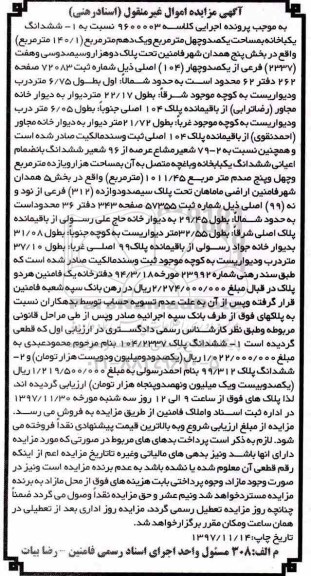 آگهی مزایده اموال غیرمنقول (اسنادرهنی)
به موجب پرونده اجرایی کلاسه ۹۶۰۰۰۰۳ نسبت به ۱- ششدانگ
یکبابخانه بمساحت یکصدوچهل مترمربع ویک دهم مترمربع (۱۴۰/۱ مترمربع)
واقع در بخش پنج همدان شهرفامنین تحت پلاک دوهزاروسیصدوسی وهفت
(۲۳۳۷) فرعی از یکصدوچهار (۱۰۴) اصلی ذیل شماره ثبت ۷۲۰۸۳ صفحه
۲۶۲ دفتر ۶۲ محدود است به حدود شمالاً: اول بطول ۶/۷۵ متردرب
ودیواریست به کوچه موجود شرقاً: بطول ۲۲/۱۷ متردیوار به دیوار خانه
مجاور (رضاترابی) از باقیمانده پلاک ۱۰۴ اصلی جنوباً: بطول ۶/۰۵ متر درب
ودیواریست به کوچه موجود غرباً: بطول ۲۱/۷۲ متر دیوار به دیوار خانه مجاور
(احمدنقوی) از باقیمانده پلاک ۱۰۴ اصلی ثبت وسندمالکیت صادر شده است
و همچنین نسبت به ۲- ۷۹ شعیرمشاع عرصه از ۹۶ شعیر ششدانگ بانضمام
اعیانی ششدانگ یکبابخانه وباغچه متصل به آن بمساحت هزارویازده مترمربع
وچهل وپنج صدم متر مربع (۱۰۱۱/۴۵ مترمربع) واقع در بخش ۵ همدان
شهرفامنین اراضی ماماهان تحت پلاک سیصدودوازده (۳۱۲) فرعی از نود و
نه (۹۹) اصلی ذیل شماره ثبت ۵۷۳۵۵ صفحه ۳۴۳ دفتر ۳۶ محدوداست
به حدود شمالاً: بطول ۲۲/۴۵ به دیوار خانه حاج علی رسولی از باقیمانده
پلاک اصلی شرقاً: بطول ۳۲/۵۵ متر دیواریست به کوچه جنوباً: بطول ۳۱/۰۸
بدیوار خانه جواد رسولی از باقیمانده پلاک ۹۹ اصلی غرباً: بطول ۳۷/۱۰
متردرب ودیواریست به کوچه موجود ثبت وسندمالکیت صادر شده است که
طبق سندرهنی شماره ۲۳۹۹۲ مورخه ۹۴/۳/۱۸ دفترخانه یک فامنین هردو
پلاک در قبال مبلغ ۲/۲۷۴/۰۰۰/۰۰۰ ریال در رهن بانک سپه شعبه فامنین
قرار گرفته وپس از آن به علت عدم تسویه حساب توسط بدهکاران نسبت
به پلاکهای فوق از طرف بانک سپه اجرائیه صادر وپس از طی مراحل قانونی
مربوطه وطبق نظر کارشناس رسمی دادگستری در ارزیابی اول که قطعی
گردیده است ۱- ششدانگ پلاک ۱۰۴/۲۳۳۷ بنام مرحوم محمودعبدی به
مبلغ ۱/۰۲۲/۰۰۰/۰۰۰ ریال (یکصدودومیلیون ودویست هزار تومان) و۲-
ششدانگ پلاک ۹۹/۳۱۲ بنام احمدرسولی به مبلغ ۱/۲۱۹/۵۰۰/۰۰۰ ریال
(یکصدوبیست ویک میلیون ونهصدوپنجاه هزار تومان) ارزیابی گردیده اند.
لذا پلاک های فوق از ساعت ۹ الی ۱۲ روز سه شنبه مورخه ۱۳۹۷/۱۱/۳۰
در اداره ثبت اسناد واملاک فامنین از طریق مزایده به فروش می رسد.
مزایده از مبلغ ارزیابی شروع وبه بالاترین قیمت پیشنهادی نقداً فروخته می
شود. لازم به ذکر است پرداخت بدهای های مربوط در صورتی که مورد مزایده
دارای آنها باشد ونیز بدهی های مالیاتی وغیره تاتاریخ مزایده اعم از اینکه
رقم قطعی آن معلوم شده یا نشده باشد به عدم برنده مزایده است ونیز در
صورت وجود مازاد، وجوه پرداختی بابت هزینه های فوق از محل مازاد به برنده
مزایده مستردخواهد شد ونیم عشر و حق مزایده نقداً وصول می گردد ضمناً
چنانچه روز مزایده تعطیل رسمی گردد، مزایده روز اداری بعد از تعطیلی در
همان ساعت ومکان مقرر برگزارخواهد شد.
تاریخ چاپ: ۱۳۹۷/۱۱/۱۴
م الف: ۳۰۸ مسئول واحد اجرای اسناد رسمی فامنین – رضا بیات